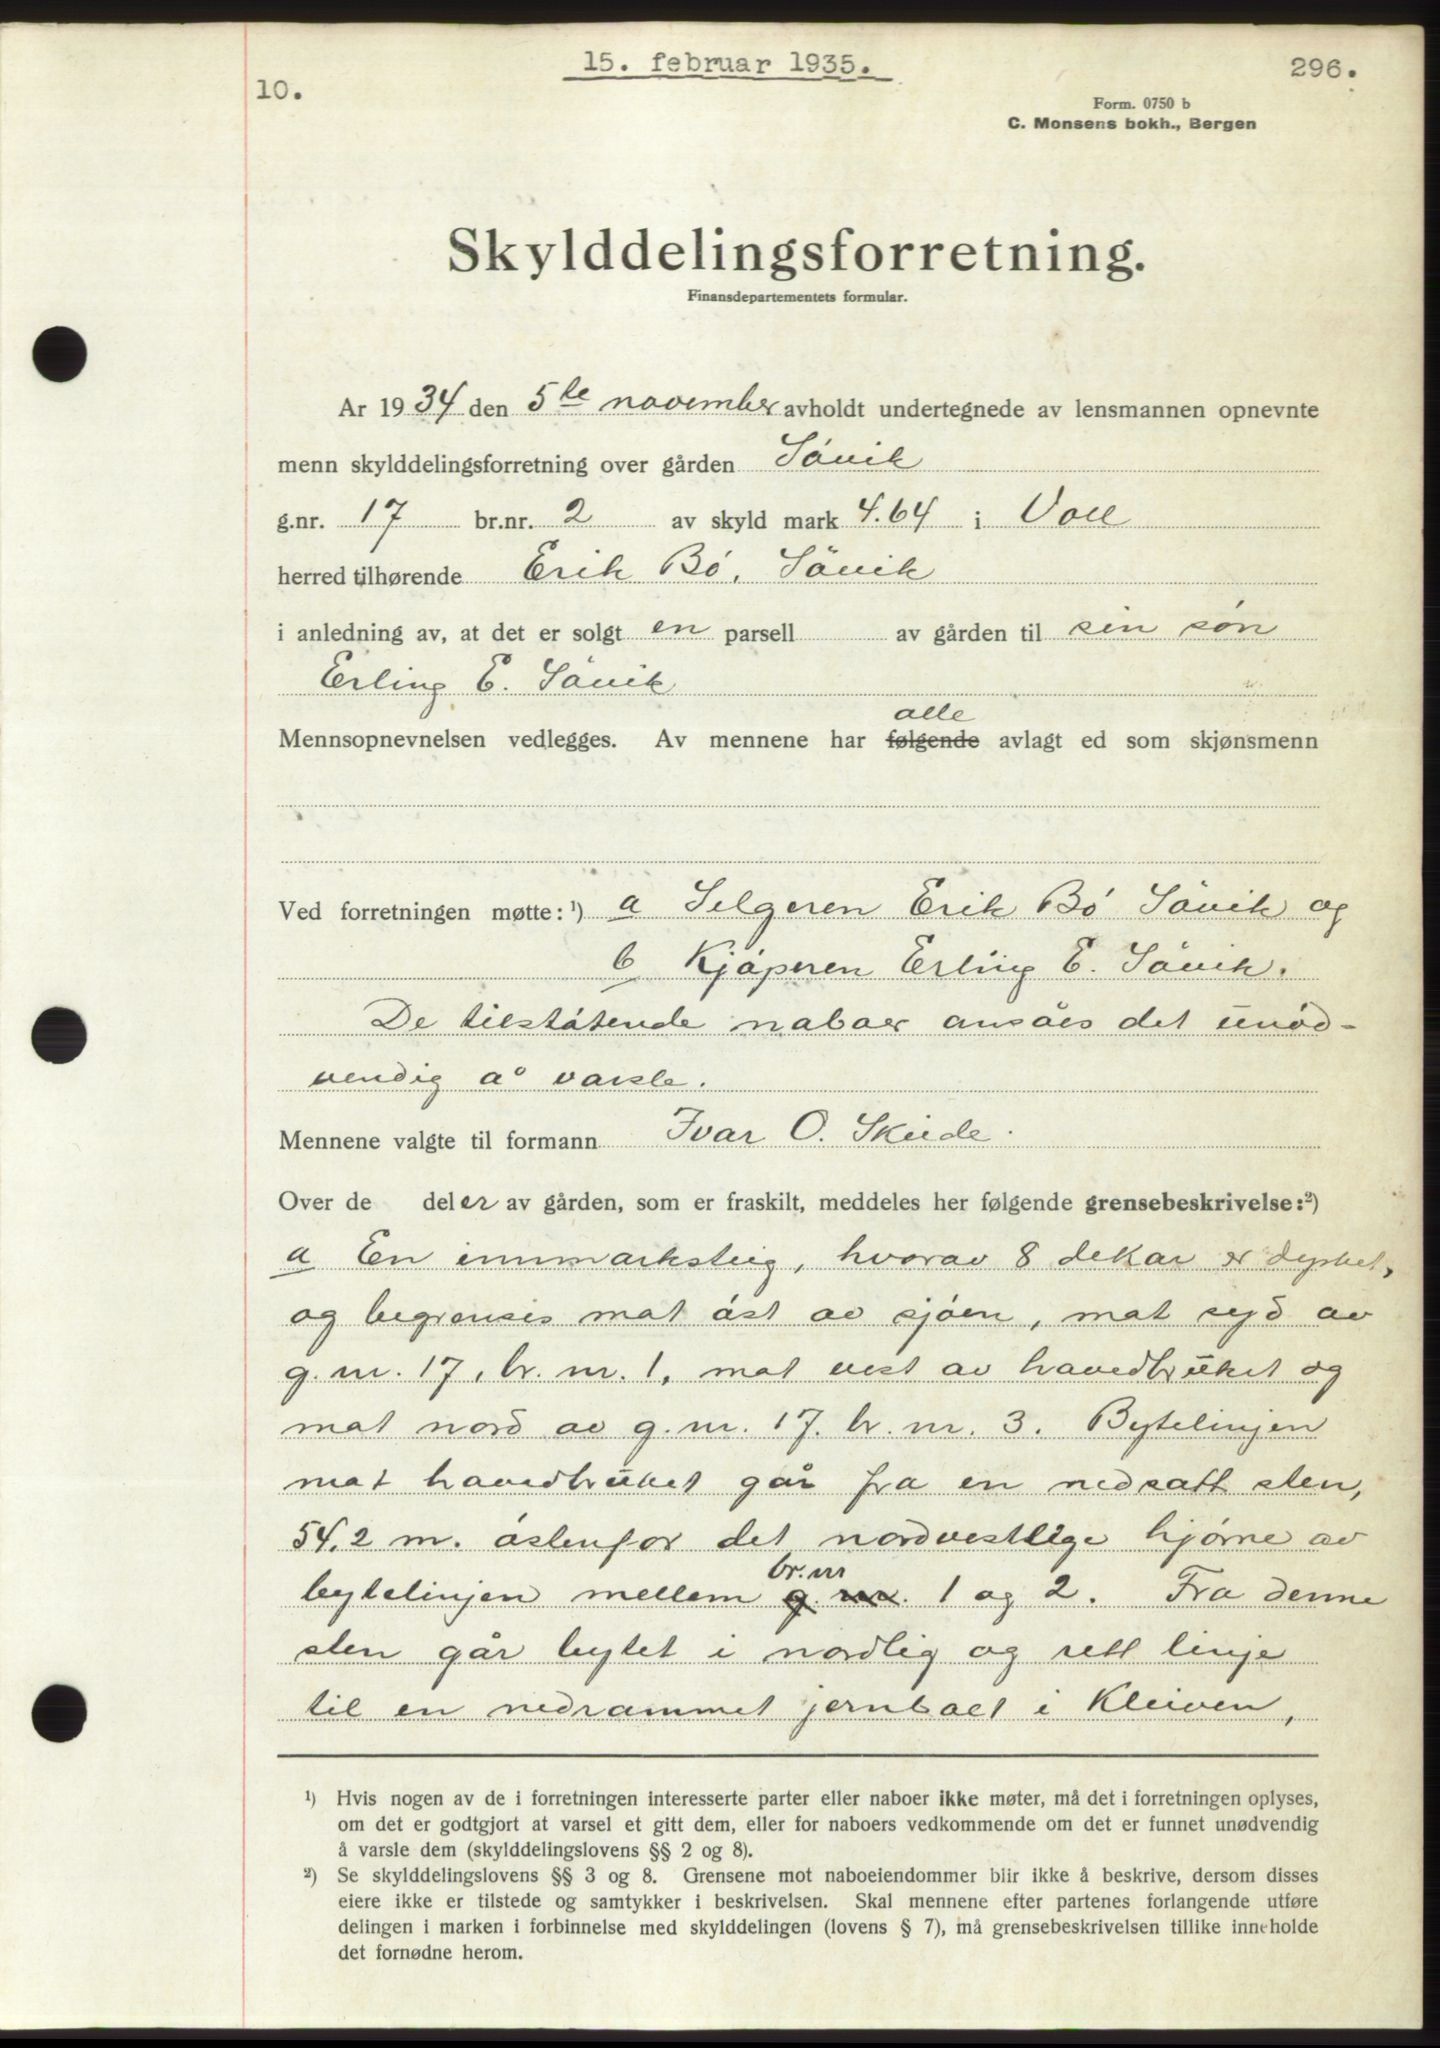 15. februar 1935.
296.
10.
Form. 0750 b
C. Monsens bokh., Bergen
Skylddelingsforretning.
Finansdepartementets formular.
Ar 1934 den 5te november avholdt undertegnede av lensmannen opnevnte
menn skylddelingsforretning over gården Søvik
g.nr. 17 br.nr. 2 av skyld mark 4.64 i Voll
herred tilhørende Erik Bø, Søvik
i anledning av, at det er solgt en parsell av gården til sin søn
Erling E. Søvik
alle
Mennsopnevnelsen vedlegges. Av mennene har følgende avlagt ed som skjønsmenn
Ved forretningen møtte: ¹) a Selgeren Erik Bø Søvik og
b Kjøperen Erling E. Søvik.
De tilstøtende naboer ansåes det unød-
vendig å varsle.
Mennene valgte til formann Ivar O. Skeide.
Over de deler av gården, som er fraskilt, meddeles her følgende grensebeskrivelse: ²)
a En innmarksteig, hvorav 8 dekar er dyrket,
og begrenses mot øst av sjøen, mot syd av
g. nr. 17, br. nr. 1, mot vest av hovedbruket og
mot nord av g. nr. 17. br. nr. 3. Bytelinjen
mot hovedbruket går fra en nedsatt sten,
54.2 m. østenfor det nordvestlige hjørne av
br. nr
bytelinjen mellem g. nr. 1 og 2. Fra denne
sten går bytet i nordlig og rett linje
til en nedrammet jernbolt i Kleiven,
¹) Hvis nogen av de i forretningen interesserte parter eller naboer ikke møter, må det i forretningen oplyses,
om det er godtgjort at varsel et gitt dem, eller for naboers vedkommende om det er funnet unødvendig
å varsle dem (skylddelingslovens §§ 2 og 8).
²) Se skylddelingslovens §§ 3 og 8. Grensene mot naboeiendommer blir ikke å beskrive, dersom disses
eiere ikke er tilstede og samtykker i beskrivelsen. Skal mennene efter partenes forlangende utføre
delingen i marken i forbinnelse med skylddelingen (lovens § 7), må grensebeskrivelsen tillike inneholde
det fornødne herom.